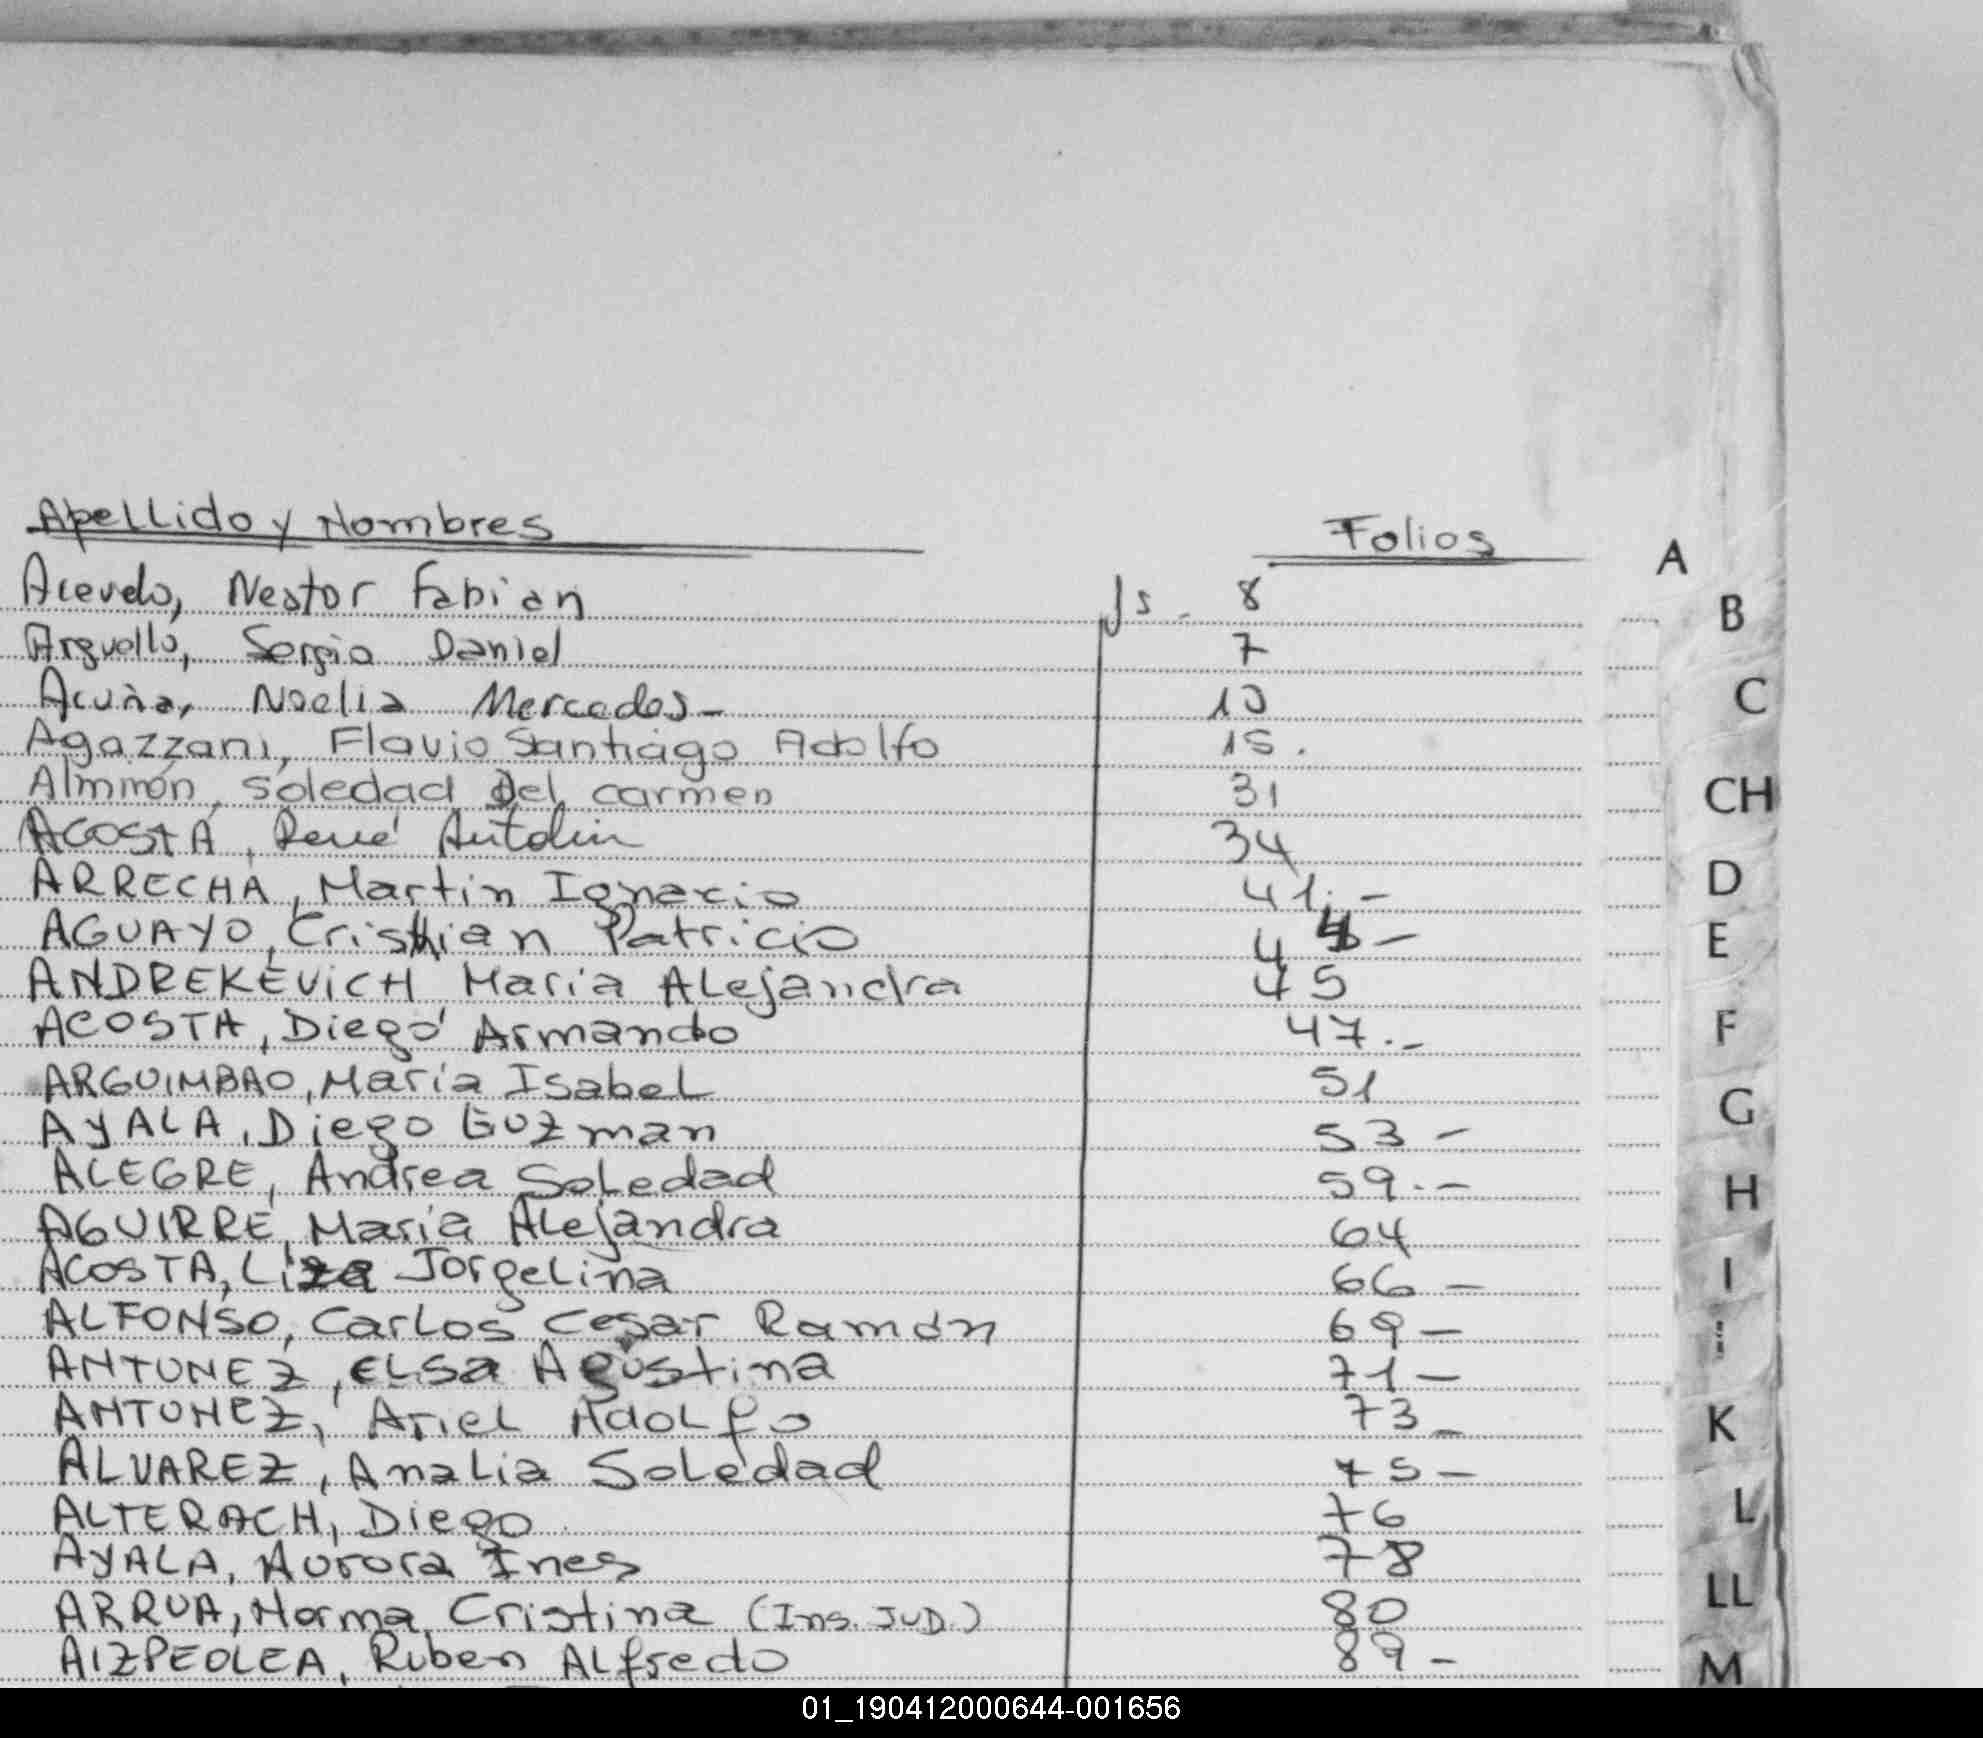 Apellido y Nombres Folios
Acevedo, Nestor Fabian fs. 8
Arguello, Sergio Daniel 7
Acuña, Noelia Mercedes - 10
Agazzani, Flavio Santiago Adolfo 15.
Almirón, Soledad Del carmen 31
ACOSTA, René Antolin 34
ARRECHA, Martin Ignacio 41.-
AGUAYO, Cristhian Patricio 44 -
ANDREKEVICH Maria Alejandra 45
ACOSTA, Diego Armando 47.-
ARGUIMBAO, Maria Isabel 51
AYALA, Diego Guzman 53 -
ALEGRE, Andrea Soledad 59.-
AGUIRRE, Maria Alejandra 64
ACOSTA, Liza Jorgelina 66 -
ALFONSO, Carlos Cesar Ramón 69 -
ANTUNEZ, ELSA Agustina 71 -
ANTUNEZ, Ariel Adolfo 73 -
ALVAREZ, Analia Soledad 75 -
ALTERACH, Diego 76
AYALA, Aurora Ines 78
ARRUA, Norma Cristina (Ins. JUD.) 80
AIZPEOLEA, Ruben Alfredo 89 -
A
B
C
CH
D
E
F
G
H
I
K
L
LL
M
01_190412000644-001656